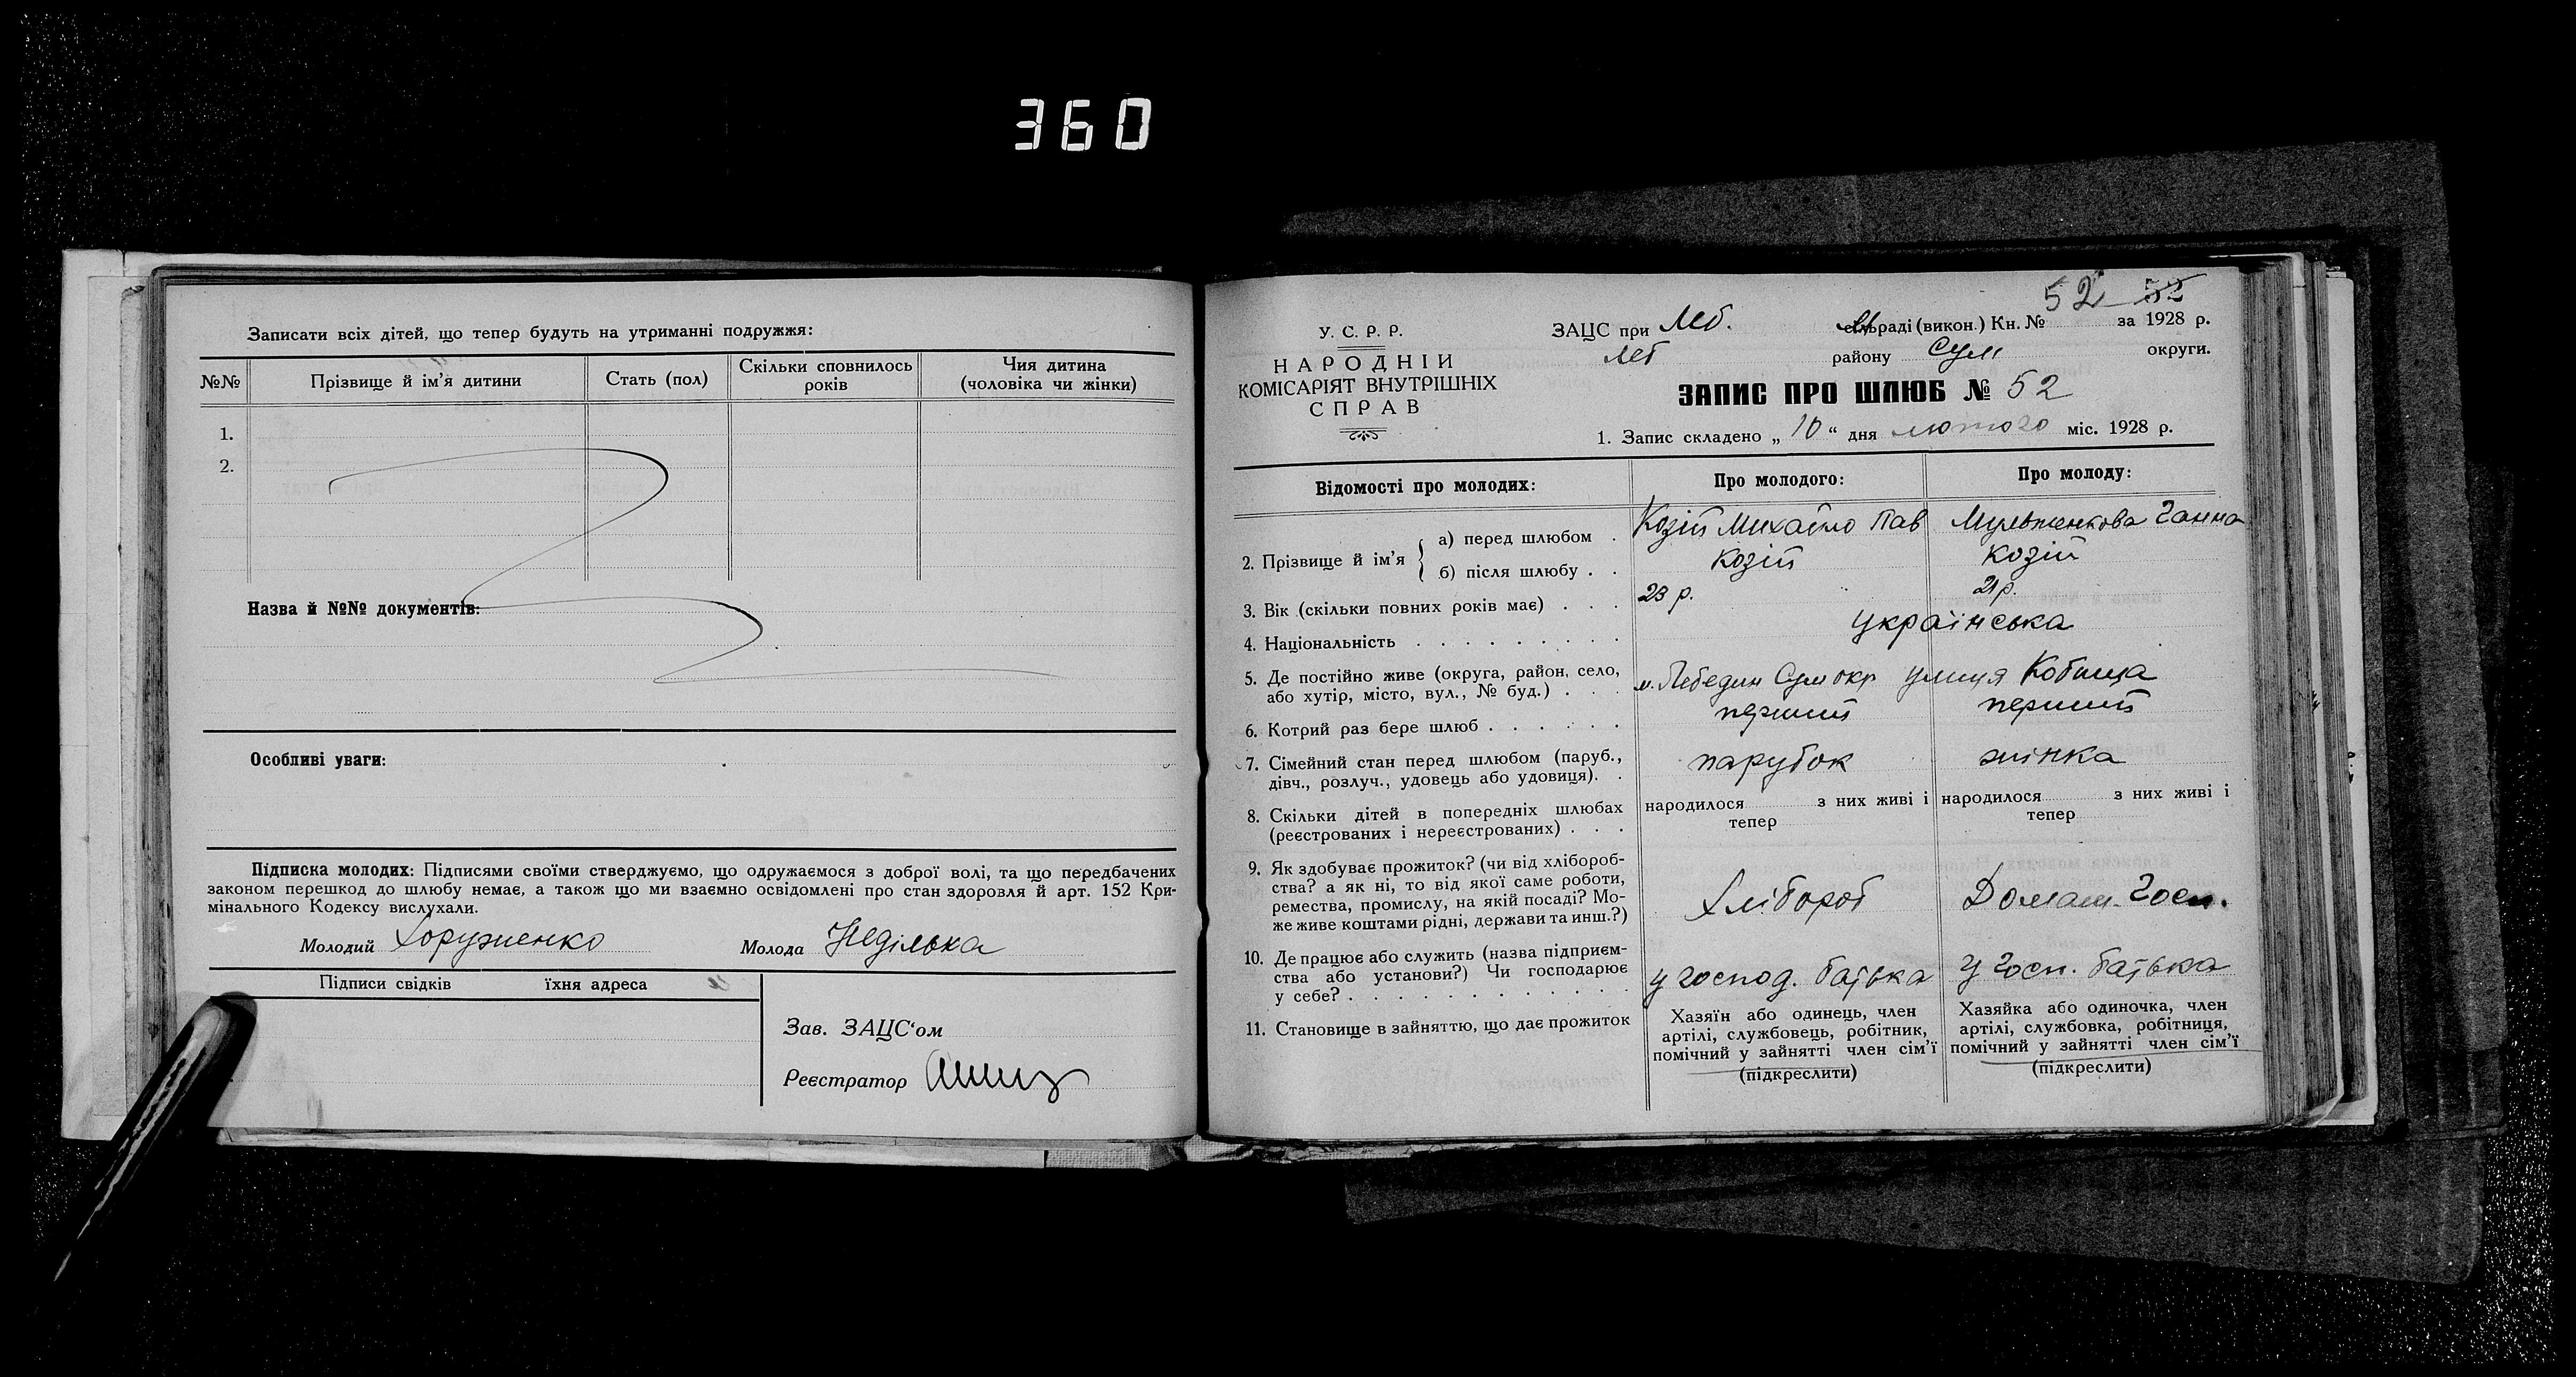 360
Записати всіх дітей, що тепер будуть на утриманні подружжя:
№№ Прізвище й ім'я дитини Стать (пол) Скільки сповнилось років Чия дитина (чоловіка чи жінки)
1.
2.
Назва й №№ документів:
Особливі уваги:
Підписка молодих: Підписями своїми стверджуємо, що одружаємося з доброї волі, та що передбачених
законом перешкод до шлюбу немає, а також що ми взаємно освідомлені про стан здоровля й арт. 152 Кри-
мінального Кодексу вислухали.
Молодий Хоруженко Молода Неділька
Підписи свідків їхня адреса
Зав. ЗАЦС'ом
Реєстратор
52 52
У. С. Р. Р.
НАРОДНІЙ
КОМІСАРІЯТ ВНУТРІШНІХ
СПРАВ
ЗАЦС при Леб. раді (викон.) Кн. № за 1928 р.
Леб району Сум округи.
ЗАПИС ПРО ШЛЮБ № 52
1. Запис складено „ 10 “ дня лютого міс. 1928 р.
Відомості про молодих: Про молодого: Про молоду:
2. Прізвище й ім'я
а) перед шлюбом . Козій Михайло Пав Ганна
б) після шлюбу . . Козій Козій
3. Вік (скільки повних років має) . . . 23 р. 21 р.
4. Національність . . . . . . . . . . українська
5. Де постійно живе (округа, район, село,
або хутір, місто, вул., № буд.) . . . м. Лебедин Сум окр улиця Кобища
6. Котрий раз бере шлюб . . . . . . перший перший
7. Сімейний стан перед шлюбом (паруб.,
дівч., розлуч., удовець або удовиця). . парубок жінка
8. Скільки дітей в попередніх шлюбах
(реєстрованих і нереєстрованих) . . .
народилося з них живі і
тепер
народилося з них живі і
тепер
9. Як здобуває прожиток? (чи від хлібороб-
ства? а як ні, то від якої саме роботи,
ремества, промислу, на якій посаді? Мо-
же живе коштами рідні, держави та инш.?)
Хлібороб Домаш. Госп.
10. Де працює або служить (назва підприєм-
ства або установи?) Чи господарює
у себе? . . . . . . . . . . . . . у господ. батька у госп. батька
11. Становище в зайняттю, що дає прожиток
Хазяїн або одинець, член
артілі, службовець, робітник,
помічний у зайнятті член сім'ї
(підкреслити)
Хазяйка або одиночка, член
артілі, службовка, робітниця,
помічний у зайнятті член сім'ї
(підкреслити)